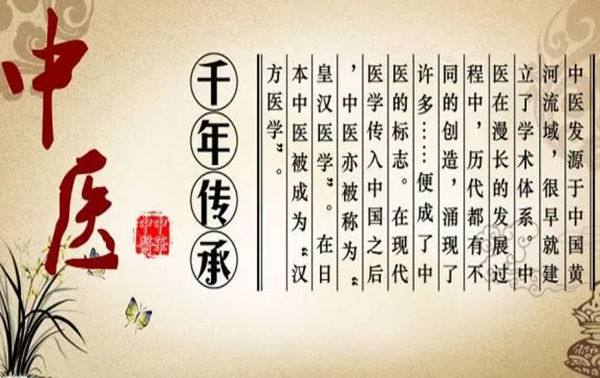 中医
中華
中醫
千年传承
中医发源于中国黄
河流域，很早就建
立了学术体系。中
医在漫长的发展过
程中，历代都有不
同的创造，涌现了
许多……便成了中
医的标志。在现代
医学传入中国之后
，中医亦被称为“
皇汉医学”。在日
本中医被成为“汉
方医学”。